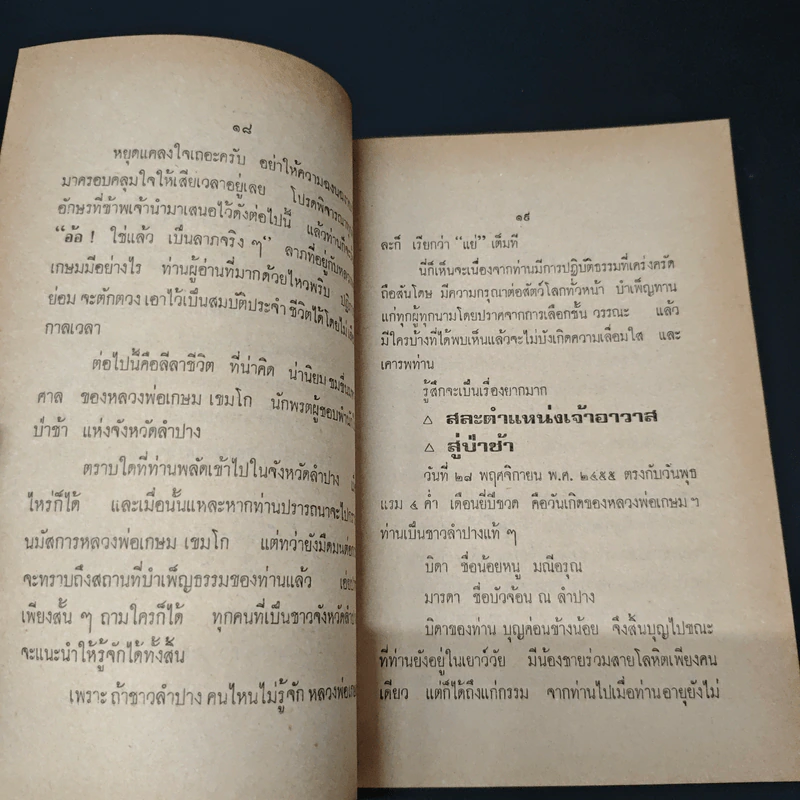 ๑๘
หยุดแคลงใจเถอะครับ อย่าให้ความ
มาครอบคลุมใจให้เสียเวลาอยู่เลย
อักษรที่ข้าพเจ้านำมาเสนอไว้ดังต่อไปนี้
"อ้อ ! ใช่แล้ว เป็นลาภจริง ๆ" ลาภที่อยู่กับ
เกษมมีอย่างไร ท่านผู้อ่านที่มากด้วยไหวพริบ
ย่อม จะตักตวง เอาไว้เป็นสมบัติประจำ ชีวิตได้โดย
กาลเวลา
ต่อไปนี้คือลีลาชีวิต ที่น่าคิด น่านิยม
ศาล ของหลวงพ่อเกษม เขมโก นักพรตผู้ชอบ
ป่าช้า แห่งจังหวัดลำปาง
ตราบใดที่ท่านพลัดเข้าไปในจังหวัดลำปาง
ไหร่ก็ได้ และเมื่อนั้นแหละหากท่านปรารถนาจะ
นมัสการหลวงพ่อเกษม เขมโก แต่ทว่ายังมืดมน
จะทราบถึงสถานที่บำเพ็ญธรรมของท่านแล้ว
เพียงสั้น ๆ ถามใครก็ได้ ทุกคนที่เป็นชาวจังหวัด
จะแนะนำให้รู้จักได้ทั้งสิ้น
เพราะ ถ้าชาวลำปาง คนไหนไม่รู้จัก หลวงพ่อ
๑๙
ละก็ เรียกว่า "แย่" เต็มที
นี่ก็เห็นจะเนื่องจากท่านมีการปฏิบัติธรรมที่เคร่งครัด
ถือสันโดษ มีความกรุณาต่อสัตว์โลกทั่วหน้า บำเพ็ญทาน
แก่ทุกผู้ทุกนามโดยปราศจากการเลือกชั้น วรรณะ แล้ว
มีใครบ้างที่ได้พบเห็นแล้วจะไม่บังเกิดความเลื่อมใส และ
เคารพท่าน
รู้สึกจะเป็นเรื่องยากมาก
△ สละตำแหน่งเจ้าอาวาส
△ สู่ป่าช้า
วันที่ ๒๘ พฤศจิกายน พ.ศ. ๒๔๕๕ ตรงกับวันพุธ
แรม ๔ ค่ำ เดือนยี่ปีชวด คือวันเกิดของหลวงพ่อเกษม ฯ
ท่านเป็นชาวลำปางแท้ ๆ
บิดา ชื่อน้อยหนู มณีอรุณ
มารดา ชื่อบัวจ้อน ณ ลำปาง
บิดาของท่าน บุญค่อนข้างน้อย จึงสิ้นบุญไปขณะ
ที่ท่านยังอยู่ในเยาว์วัย มีน้องชายร่วมสายโลหิตเพียงคน
เดียว แต่ก็ได้ถึงแก่กรรม จากท่านไปเมื่อท่าน อายุยังไม่